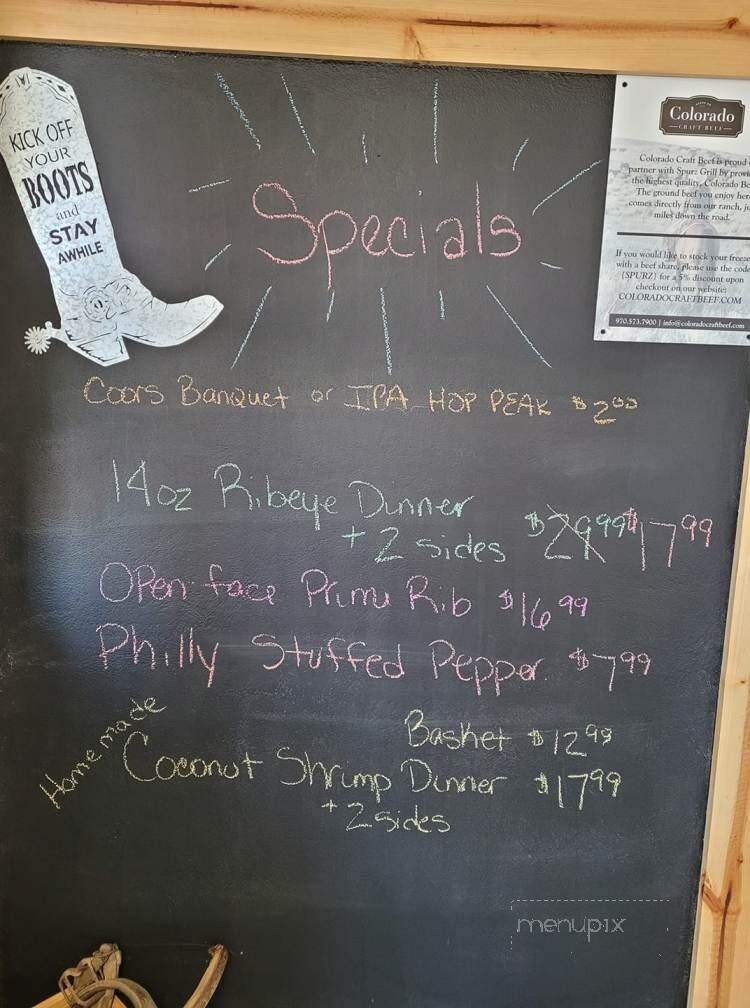 KICK OFF
YOUR
BOOTS
and
STAY
AWHILE
Specials
Colorado
CRAFT BEEF
Colorado Craft Beef is proud
partner with Spurz Grill by
the highest quality, Colorado
The ground beef you enjoy
comes directly from our ranch,
miles down the road.
If you would like to stock your
with a beef share, please use the code
(SPURZ) for a 5% discount upon
checkout on our website:
COLORADOCRAFTBEEF.COM
970.573.7900 | info@coloradocraftbeef.com
Coors Banquet or IPA HOP PEAK $2.00
14oz Ribeye Dinner
+ 2 sides $29.99 $17.99
Open-face Prime Rib $16.99
Philly Stuffed Pepper $7.99
Homemade
Basket $12.99
Coconut Shrimp Dinner $17.99
+ 2 sides
menupix